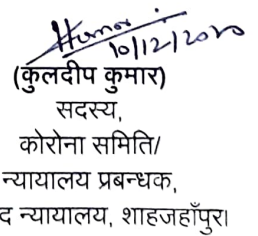 Kumar
10/12/2020
(कुलदीप कुमार)
सदस्य,
कोरोना समिति/
न्यायालय प्रबन्धक,
द न्यायालय, शाहजहाँपुर।